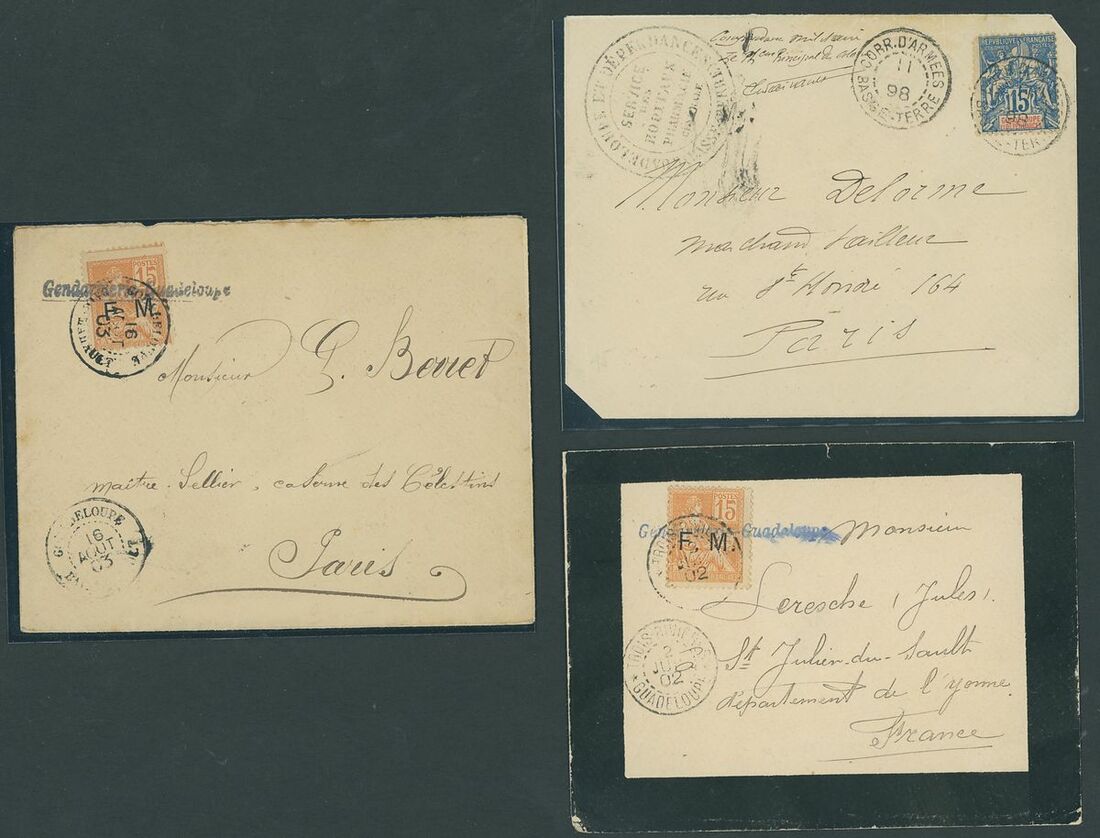 Gendarmerie Guadeloupe
15
POSTES
F. M.
16
AOUT
03
Monsieur G. Berret
maître-Sellier, caserne des Célestins
Paris
GUADELOUPE
16
AOUT
03
GUADELOUPE ET DÉPENDANCES
SERVICE
DES
HOPITAUX
PHARMACIE
Commandeur militaire
CORR. D'ARMEES
11
98
BASSE-TERRE
REPUBLIQUE FRANÇAISE
COLONIES POSTES
15
Monsieur Delorme
marchand tailleur
rue St Honoré 164
Paris
Guadeloupe
15
POSTES
F. M.
02
Monsieur
Seresche (Jules)
St Julien-du-Sault
département de l'yonne
France
TROIS-RIVIERES
02
GUADELOUPE